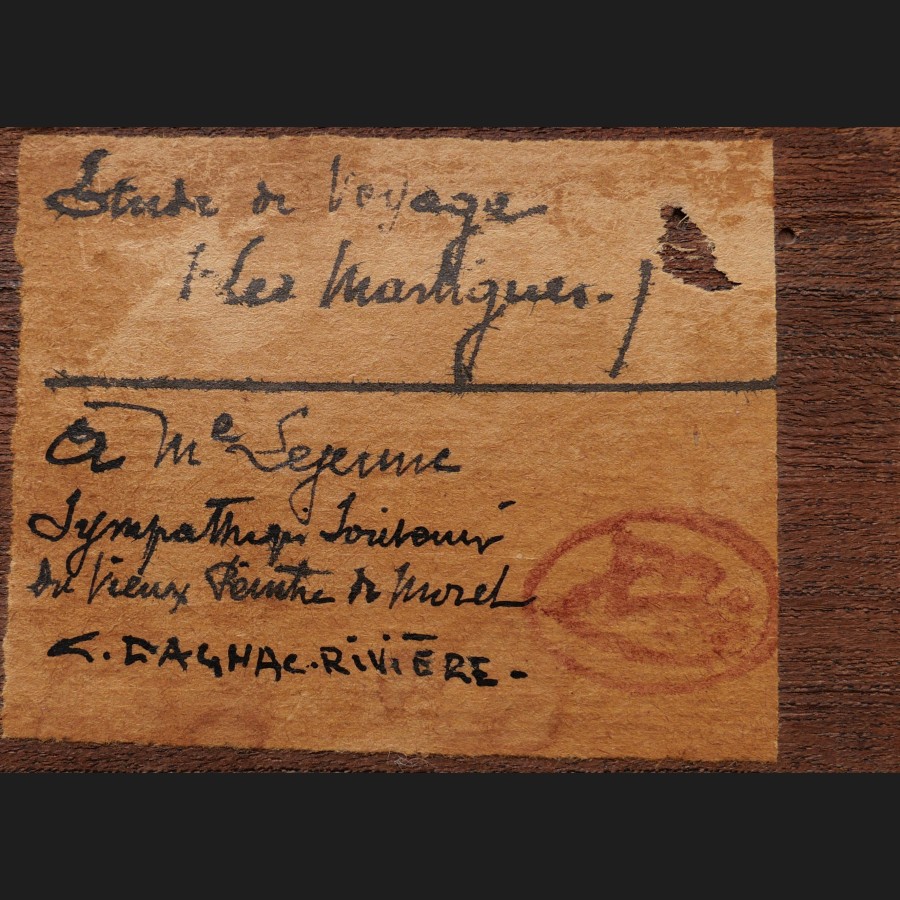 Etude de Voyage
(-Les Martigues-)
A Me Lejeune
Sympathique Souvenir
du Vieux Peintre de Moret
C. CAGNAC-RIVIÈRE-